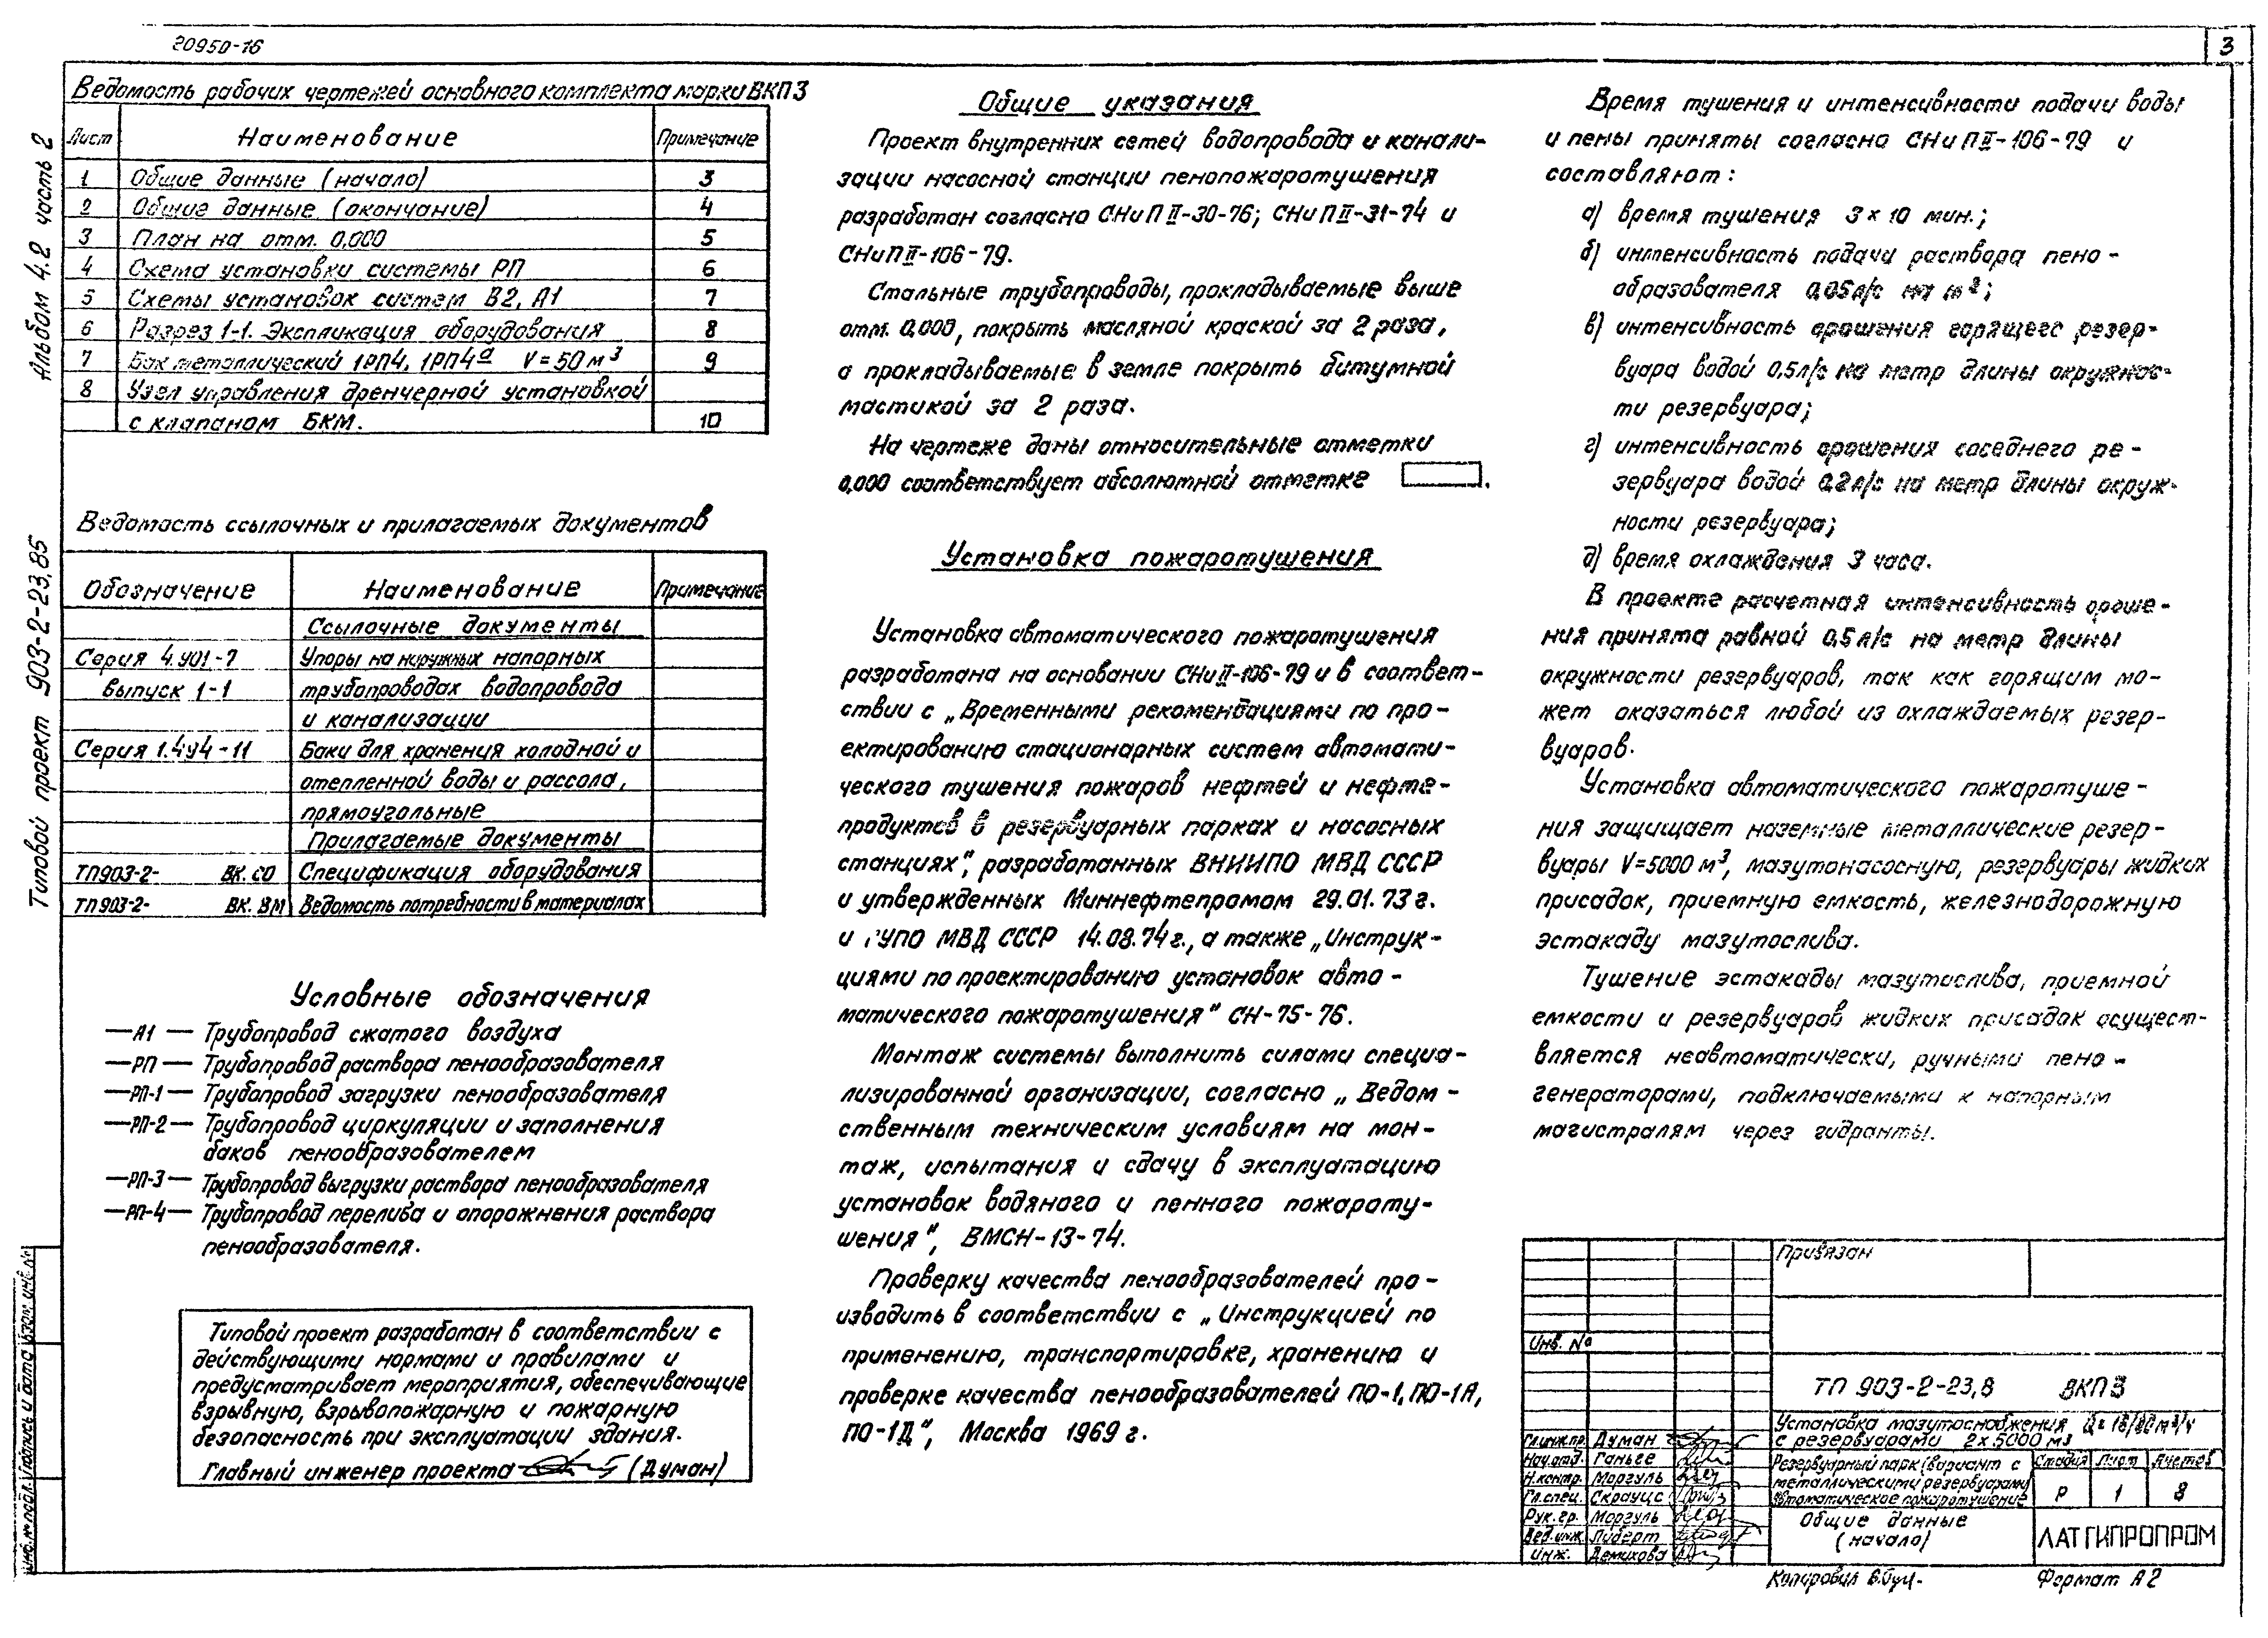 20950-16
3
Альбом 4.2 часть 2
Типовой проект 903-2-23.85
Ведомость рабочих чертежей основного комплекта марки ВКП3
Лист Наименование Примечание
1 Общие данные (начало) 3
2 Общие данные (окончание) 4
3 План на отм. 0,000 5
4 Схема установки системы РП 6
5 Схемы установок систем В2, А1 7
6 Разрез 1-1. Экспликация оборудования 8
7 Бак металлический 1РП4, 1РП4а V=50м³ 9
8 Узел управления дренчерной установкой
с клапаном БКМ. 10
Ведомость ссылочных и прилагаемых документов
Обозначение Наименование Примечание
Ссылочные документы
Серия 4.901-7 Упоры на наружных напорных
выпуск 1-1 трубопроводах водопровода
и канализации
Серия 1.494-11 Баки для хранения холодной и
отепленной воды и рассола,
прямоугольные
Прилагаемые документы
ТП903-2- ВК. СО Спецификация оборудования
ТП903-2- ВК. ВМ Ведомость потребности в материалах
Условные обозначения
—А1— Трубопровод сжатого воздуха
—РП— Трубопровод раствора пенообразователя
—РП-1— Трубопровод загрузки пенообразователя
—РП-2— Трубопровод циркуляции и заполнения
баков пенообразователем
—РП-3— Трубопровод выгрузки раствора пенообразователя
—РП-4— Трубопровод перелива и опорожнения раствора
пенообразователя.
Типовой проект разработан в соответствии с
действующими нормами и правилами и
предусматривает мероприятия, обеспечивающие
взрывную, взрывопожарную и пожарную
безопасность при эксплуатации здания.
Главный инженер проекта (Думан)
Общие указания
Проект внутренних сетей водопровода и канали-
зации насосной станции пенопожаротушения
разработан согласно СНиП II-30-76; СНиП II-31-74 и
СНиП II-106-79.
Стальные трубопроводы, прокладываемые выше
отм. 0,000, покрыть масляной краской за 2 раза,
а прокладываемые в земле покрыть битумной
мастикой за 2 раза.
На чертеже даны относительные отметки
0,000 соответствует абсолютной отметке .
Установка пожаротушения
Установка автоматического пожаротушения
разработана на основании СНиII-106-79 и в соответ-
ствии с „Временными рекомендациями по про-
ектированию стационарных систем автомати-
ческого тушения пожаров нефтей и нефте-
продуктов в резервуарных парках и насосных
станциях", разработанных ВНИИПО МВД СССР
и утвержденных Миннефтепромом 29.01.73г.
и ГУПО МВД СССР 14.08.74г., а также „Инструк-
циями по проектированию установок авто-
матического пожаротушения" СН-75-76.
Монтаж системы выполнить силами специа-
лизированной организации, согласно „Ведом-
ственным техническим условиям на мон-
таж, испытания и сдачу в эксплуатацию
установок водяного и пенного пожароту-
шения", ВМСН-13-74.
Проверку качества пенообразователей про-
изводить в соответствии с „Инструкцией по
применению, транспортировке, хранению и
проверке качества пенообразователей ПО-1, ПО-1А,
ПО-1Д", Москва 1969г.
Время тушения и интенсивности подачи воды
и пены приняты согласно СНиП II-106-79 и
составляют:
а) время тушения 3×10 мин.;
б) интенсивность подачи раствора пено-
образователя 0,05л/с на м²;
в) интенсивность орошения горящего резер-
вуара водой 0,5л/с на метр длины окружнос-
ти резервуара;
г) интенсивность орошения соседнего ре-
зервуара водой 0,2л/с на метр длины окруж-
ности резервуара;
д) время охлаждения 3 часа.
В проекте расчетная интенсивность ороше-
ния принята равной 0,5л/с на метр длины
окружности резервуаров, так как горящим мо-
жет оказаться любой из охлаждаемых резер-
вуаров.
Установка автоматического пожаротуше-
ния защищает наземные металлические резер-
вуары V=5000 м³, мазутонасосную, резервуары жидких
присадок, приемную емкость, железнодорожную
эстакаду мазутослива.
Тушение эстакады мазутослива, приемной
емкости и резервуаров жидких присадок осущест-
вляется неавтоматически, ручными пено-
генераторами, подключаемыми к напорным
магистралям через гидранты.
Привязан
Инв. №
ТП 903-2-23,8 ВКП3
Установка мазутоснабжения
с резервуарами 2×5000 м3
Гл.инж.пр. Думан
Нач.отд. Ганьге
Н.контр. Моргуль
Гл.спец. Скрауцс
Рук.гр. Моргуль
Вед.инж. Либерт
Инж. Демихова
Резервуарный парк (вариант с
металлическими резервуарами)
Автоматическое пожаротушение
Стадия Лист Листов
Р 1 8
Общие данные
(начало)
ЛАТГИПРОПРОМ
Копировал
Формат А2
Инв.№ подл. Подпись и дата Взам. инв.№